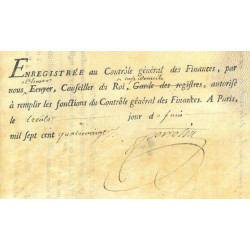 ENREGISTRÉE au Contrôle général des Finances, par
nous Ecuyer, Conseiller du Roi, Garde des registres, autorisé
à remplir les fonctions du Contrôle général des Finances. A Paris,
le jour de juin
mil sept cent quatrevingt
Perrotin